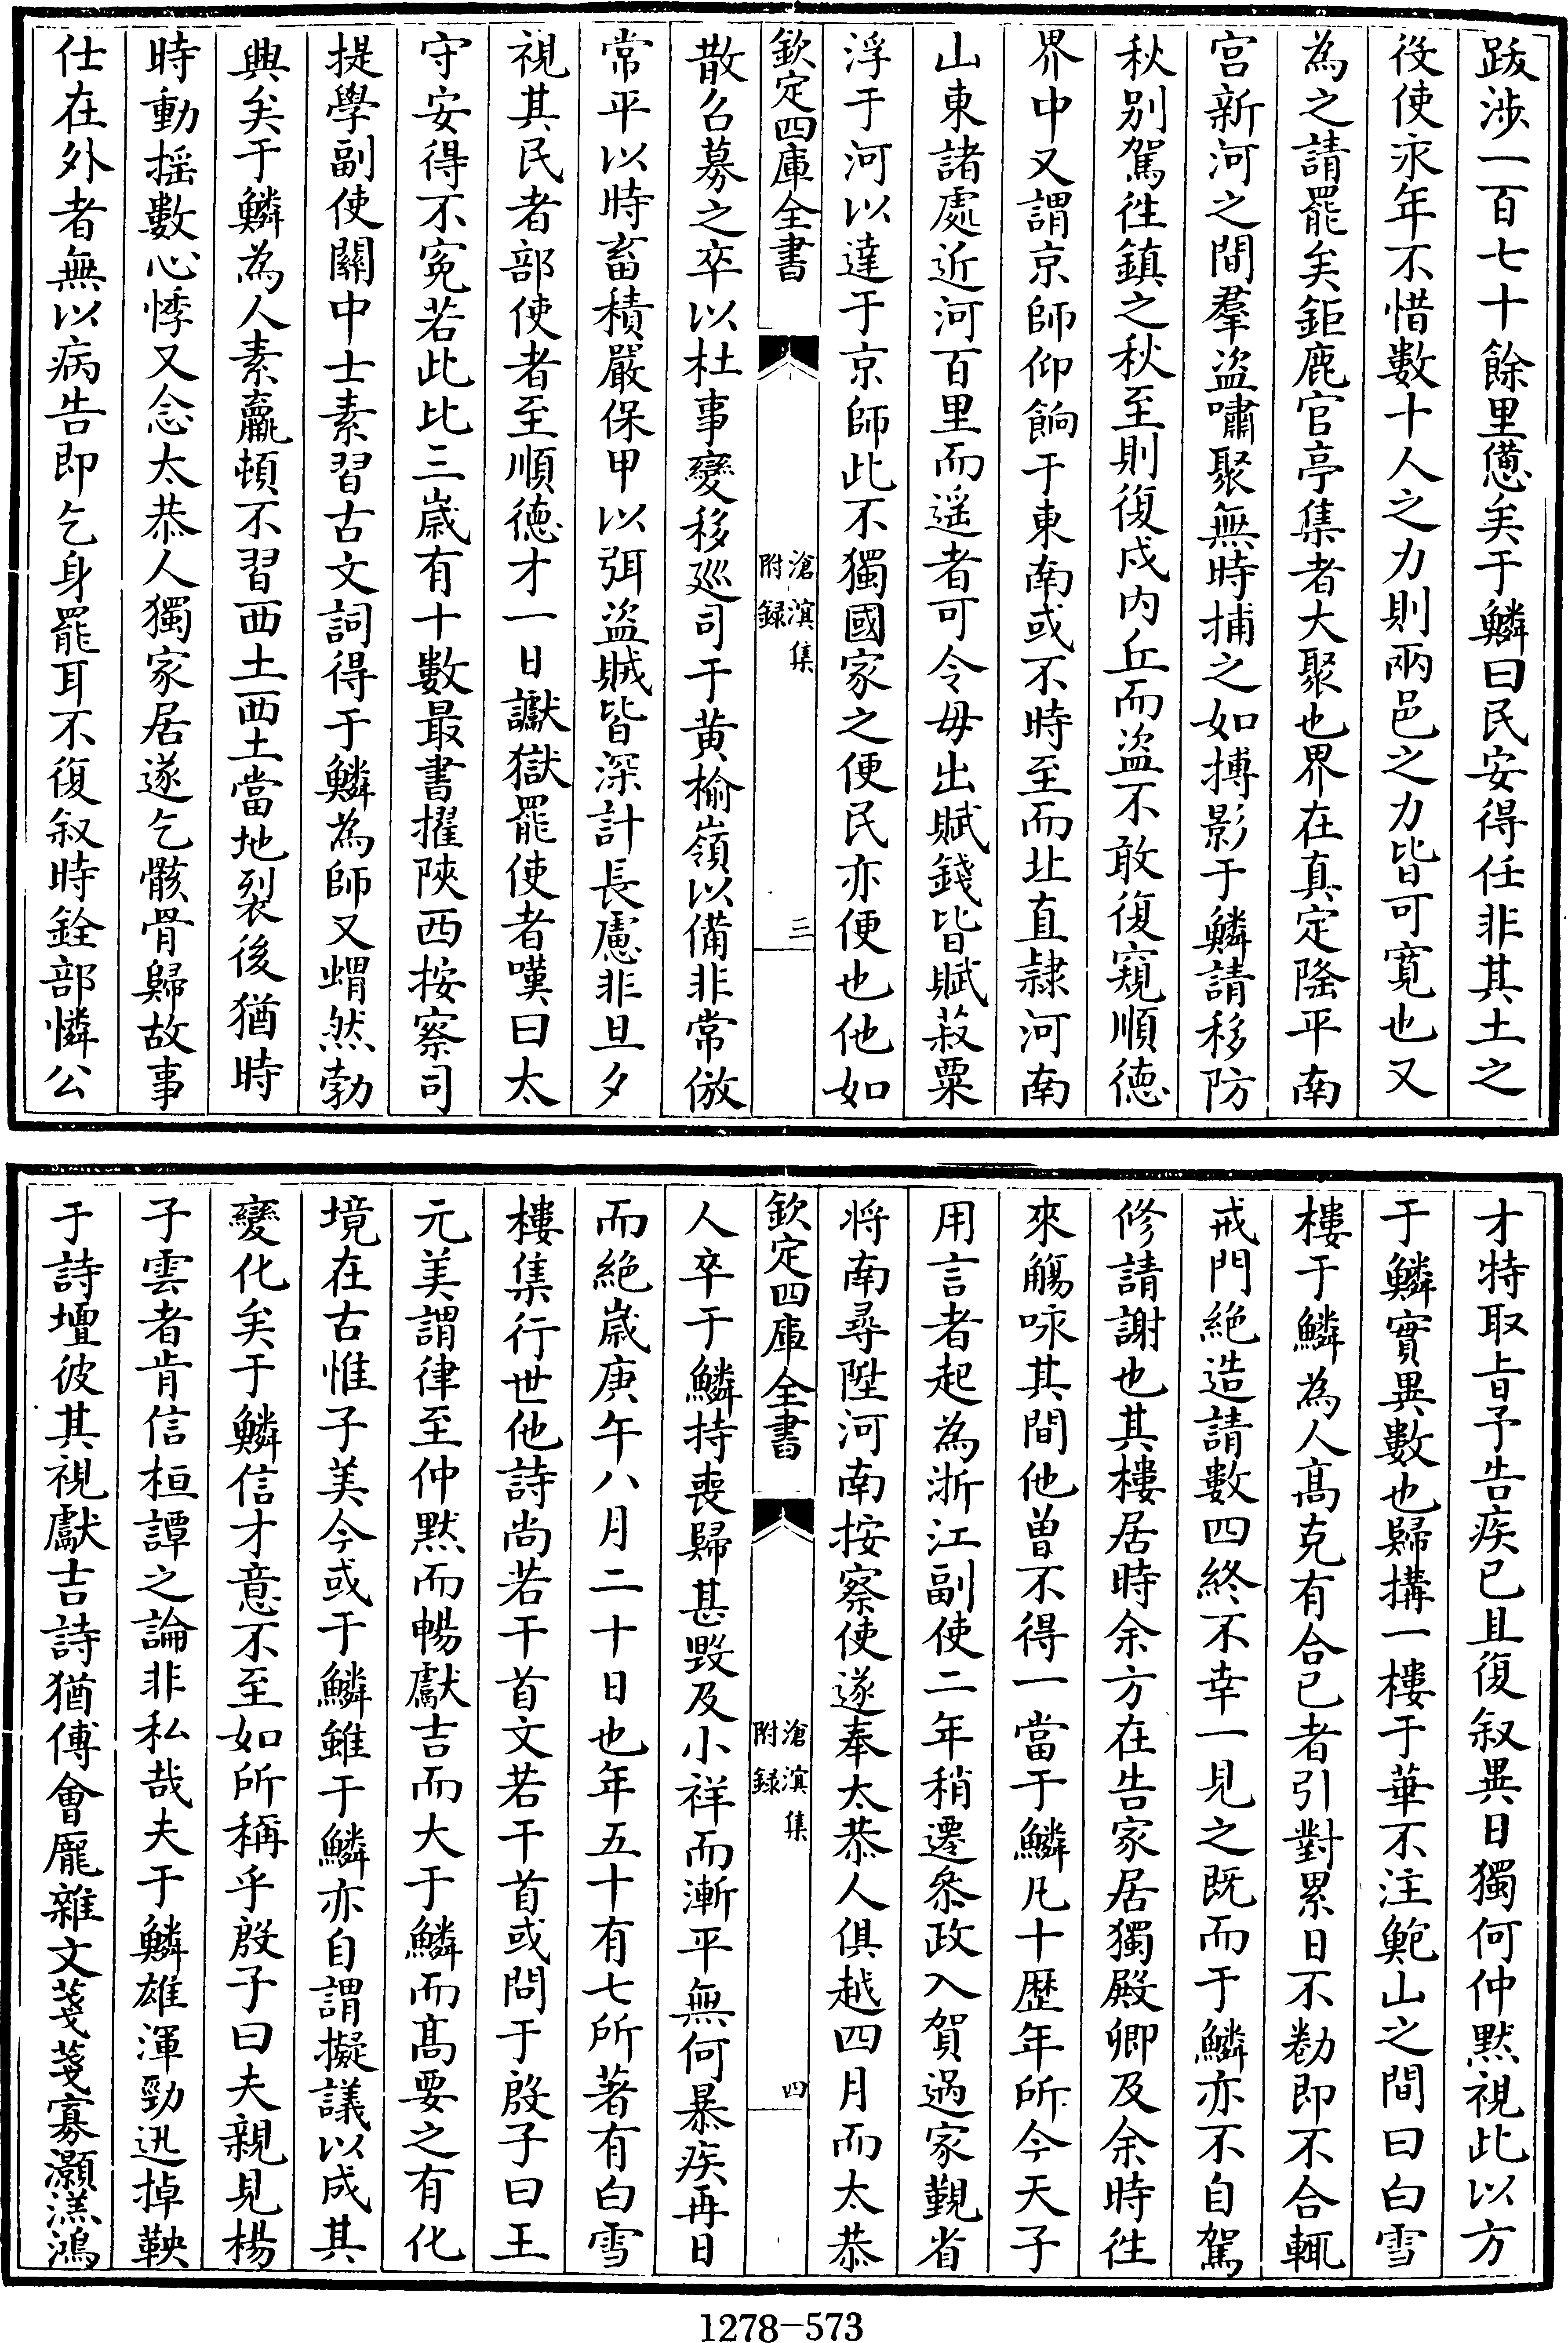 跋涉一百七十餘里憊矣于鱗曰民安得任非其土之
役使永年不惜數十人之力則兩邑之力皆可寛也又
為之請罷矣鉅鹿官亭集者大聚也界在真定隆平南
宫新河之間羣盜嘯聚無時捕之如搏影于鱗請移防
秋别駕徃鎮之秋至則復戍内丘而盜不敢復窺順徳
界中又謂京師仰餉于東南或不時至而北直隷河南
山東諸處近河百里而遥者可令毋出賦錢皆賦菽粟
浮于河以達于京師此不獨國家之便民亦便也他如
欽定四庫全書
滄溟集
附録
三
散召募之卒以杜事變移廵司于黄榆嶺以備非常倣
常平以時畜積嚴保甲以弭盜賊皆深計長慮非旦夕
視其民者部使者至順徳才一日讞獄罷使者嘆曰太
守安得不寃若此比三歲有十數最書擢陜西按察司
提學副使關中士素習古文詞得于鱗為師又蝟然勃
興矣于鱗為人素羸頓不習西土西土當地裂後猶時
時動揺數心悸又念太恭人獨家居遂乞骸骨歸故事
仕在外者無以病告即乞身罷耳不復叙時銓部憐公
才特取㫖予告疾已且復叙異日獨何仲黙視此以方
于鱗實異數也歸搆一樓于華不注鮑山之間曰白雪
樓于鱗為人髙克有合已者引對累日不勌即不合輒
戒門絶造請數四終不幸一見之既而于鱗亦不自駕
修請謝也其樓居時余方在告家居獨殿卿及余時徃
來觴咏其間他曽不得一當于鱗凡十歴年所今天子
用言者起為浙江副使二年稍遷叅政入賀過家覲省
将南尋陞河南按察使遂奉太恭人俱越四月而太恭
欽定四庫全書
滄溟集
附録
四
人卒于鱗持喪歸甚毁及小祥而漸平無何暴疾再日
而絶歲庚午八月二十日也年五十有七所著有白雪
樓集行世他詩尚若干首文若干首或問于殷子曰王
元美謂律至仲黙而暢獻吉而大于鱗而髙要之有化
境在古惟子美今或于鱗雖于鱗亦自謂擬議以成其
變化矣于鱗信才意不至如所稱乎殷子曰夫親見楊
子雲者肯信桓譚之論非私哉夫于鱗雄渾勁迅掉鞅
于詩壇彼其視獻吉詩猶傅會龎雜文戔戔寡灝溔鴻
1278-573